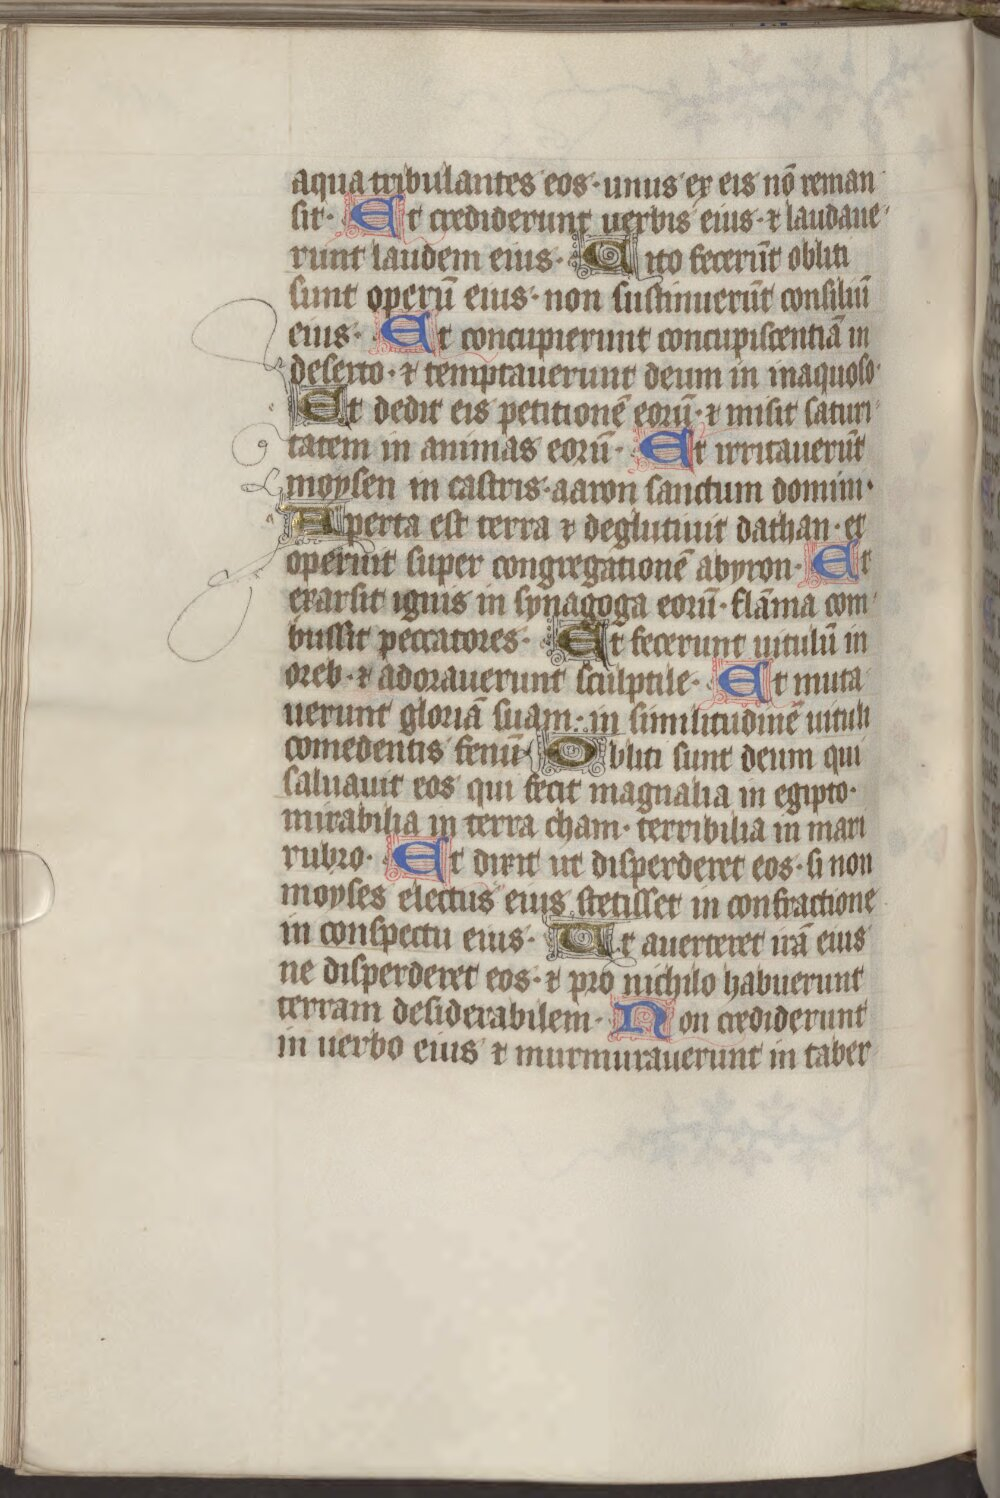 aqua tribulantes eos · unus ex eis nõ reman
sit · Et crediderunt uerbis eius · ⁊ laudaue
runt laudem eius · Cito fecerũt obliti
sunt operũ eius · non sustinuerũt consiliũ
eius · Et concupierunt concupiscentiã in
deserto · ⁊ temptauerunt deum in inaquoso ·
Et dedit eis petitionẽ eorũ · ⁊ misit saturi
tatem in animas eorũ · Et irritauerũt
moysen in castris · aaron sanctum domini ·
Aperta est terra ⁊ deglutiuit dathan · et
operuit super congregationẽ abyron · Et
exarsit ignis in synagoga eorũ · flãma com
bussit peccatores · Et fecerunt uitulũ in
oreb · ⁊ adorauerunt sculptile · Et muta
uerunt gloriã suam · in similitudinẽ uituli
comedentis fenũ Obliti sunt deum qui
saluauit eos qui fecit magnalia in egipto ·
mirabilia in terra cham · terribilia in mari
rubro · Et dixit ut disperderet eos · si non
moyses electus eius stetisset in confractione
in conspectu eius · Ut auerteret irã eius
ne disperderet eos · ⁊ pro nichilo habuerunt
terram desiderabilem · Non crediderunt
in uerbo eius ⁊ murmurauerunt in taber